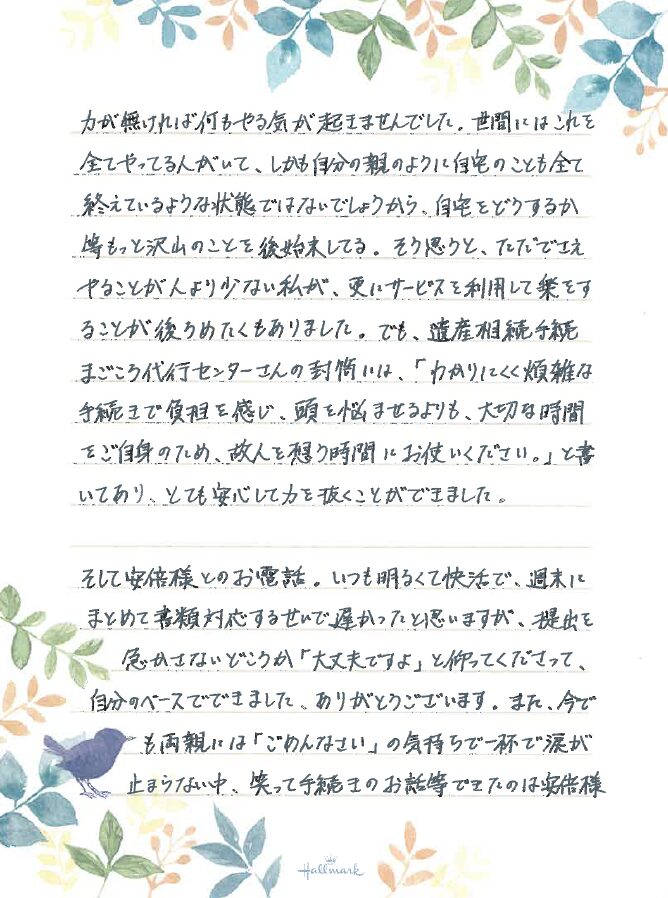 力が無ければ何もやる気が起きませんでした。世間にはこれを
全てやってる人がいて、しかも自分の親のように自宅のことも全て
終えているような状態ではないでしょうから、自宅をどうするか
等もっと沢山のことを後始末してる。そう思うと、ただでさえ
やることが人より少ない私が、更にサービスを利用して楽をす
ることが後ろめたくもありました。でも、遺産相続手続
まごころ代行センターさんの封筒には、「わかりにくく煩雑な
手続きで負担を感じ、頭を悩ませるよりも、大切な時間
をご自身のため、故人を想う時間にお使いください。」と書
いてあり、とても安心して力を抜くことができました。
そして安倍様とのお電話。いつも明るくて快活で、週末に
まとめて書類対応するせいで遅かったと思いますが、提出を
急かさないどころか「大丈夫ですよ」と仰ってくださって、
自分のペースでできました、ありがとうございます。また、今で
も両親には「ごめんなさい」の気持ちで一杯で涙が
止まらない中、笑って手続きのお話等できたのは安倍様
Hallmark